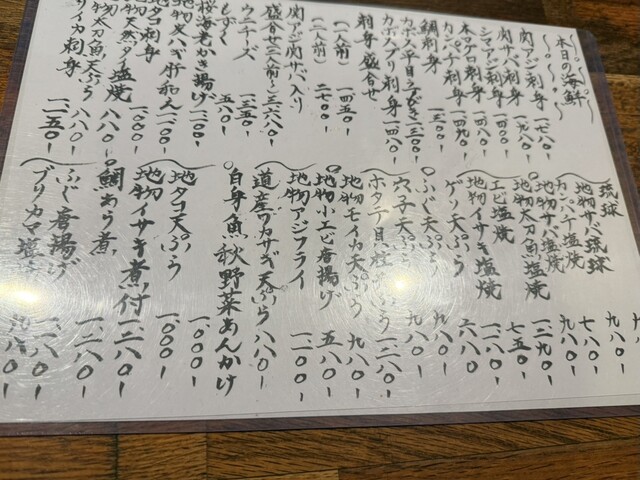 本日の海鮮
関アジ刺身 一七八〇-
関サバ刺身 一九八〇-
シマアジ刺身 一四八〇-
本マグロ刺身 一四九〇-
カンパチ刺身 一三〇〇-
鯛刺身
カボス平目えびき
カボスブリ刺身 一四八〇-
刺身盛合せ
(一人前) 一四五〇-
(二人前) 二七〇〇-
関アジ関サバ入り
盛合せ(二人前)三六八〇-
ウニチーズ 一三五〇-
しずく 五八〇-
桜海老かき揚げ 一二〇〇-
地物 肝和え 一二〇〇-
地タコ刺身 一〇〇〇-
地物天然タイ塩焼
地物太刀魚天ぷら 八八〇-
イカ刺身 一二五〇-
琉球
地物サバ琉球 九八〇-
カンパチ塩焼 七八〇-
地物サバ塩焼 九八〇-
地物太刀魚塩焼 一二九〇-
エビ塩焼 七五〇-
地物イサキ塩焼 一二八〇-
ゲソ天ぷら 六八〇-
ふぐ天ぷら 九八〇-
穴子天ぷら 九八〇-
ホタテ貝柱天ぷら 一三八〇-
地物モイカ天ぷら 九八〇-
地物小エビ唐揚げ 五八〇-
地物アジフライ 一二〇〇-
道産ワカサギ天ぷら 八八〇-
白身魚秋野菜あんかけ 一〇〇〇-
地タコ天ぷら 一〇〇〇-
地物イサキ煮付 一二八〇-
鯛あら煮 一二八〇-
ふぐ唐揚げ 一二八〇-
ブリカマ塩 九八〇-